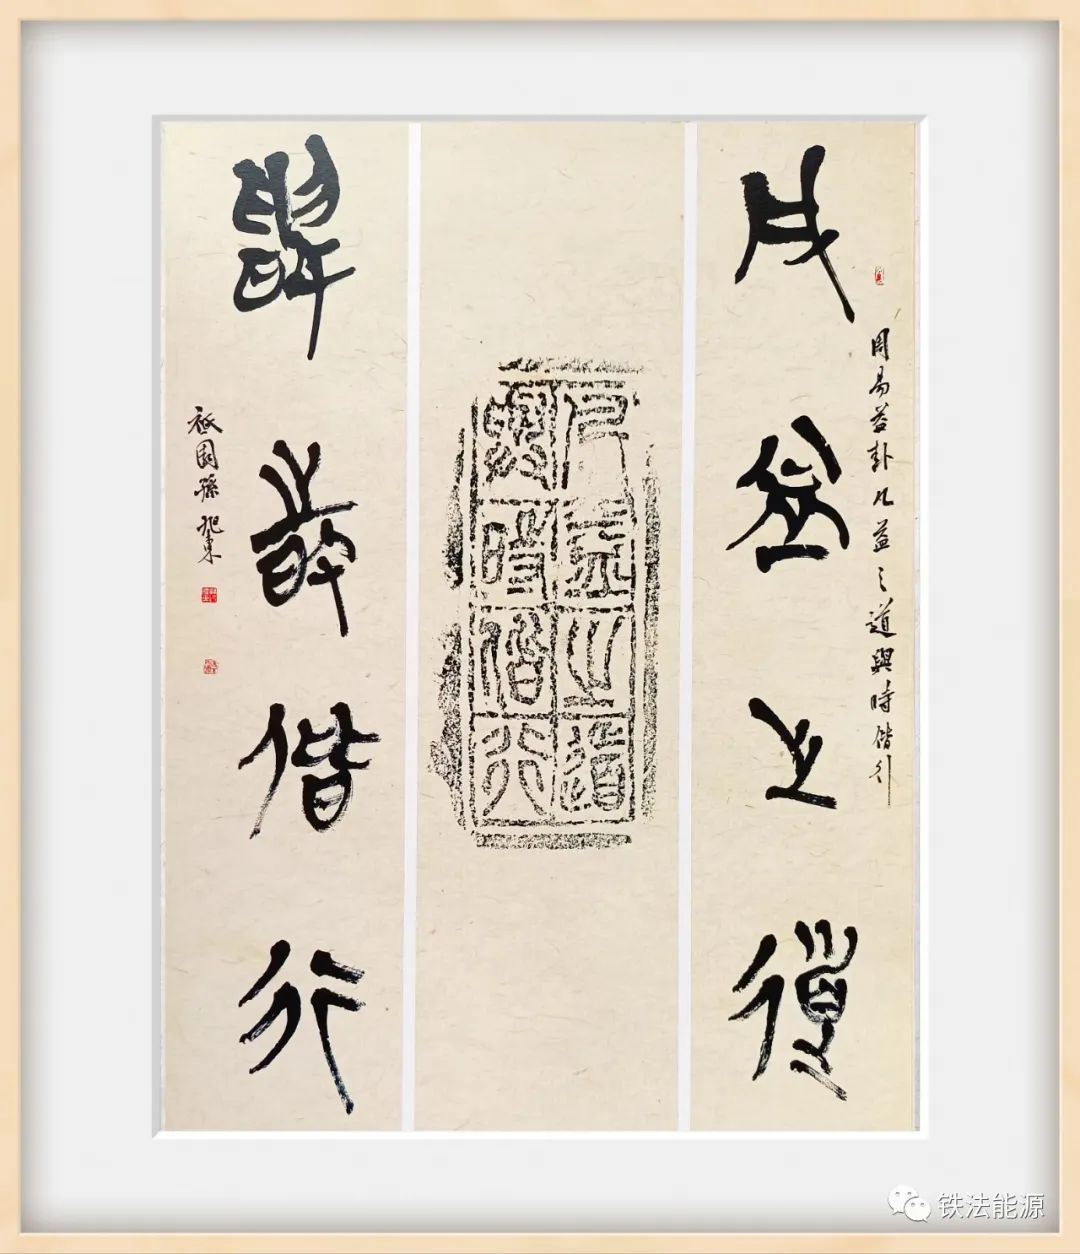 凡益之道
周易益卦凡益之道與時偕行
凡益之道
與時偕行
與時偕行
祇園孫
铁法能源